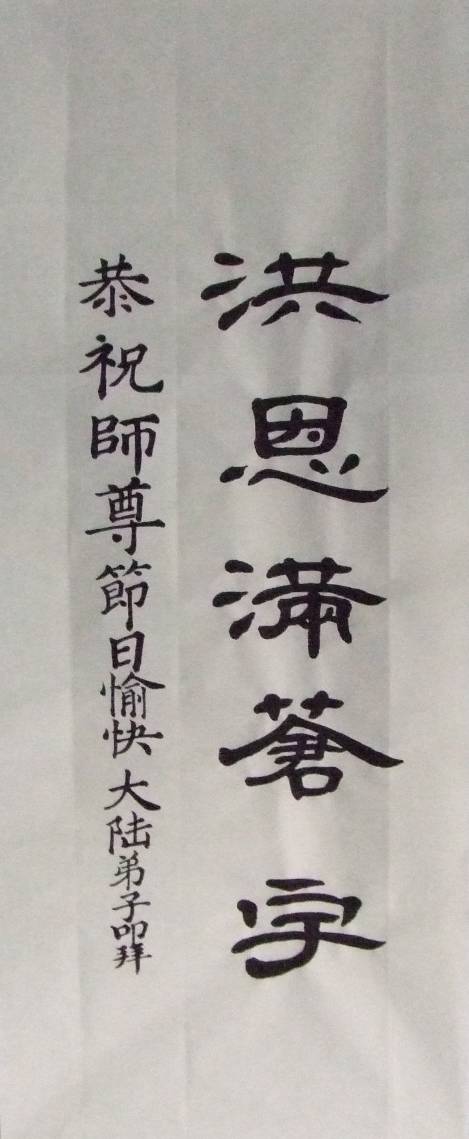 洪恩滿蒼宇
恭祝師尊節日愉快 大陆弟子叩拜